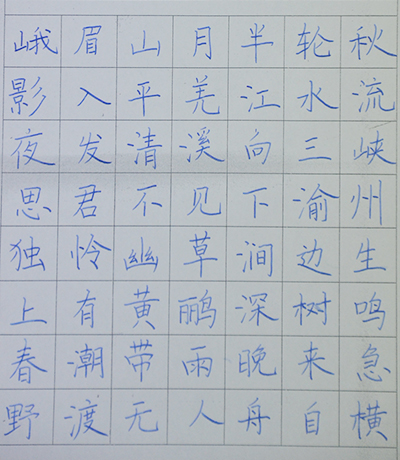 峨眉山月半轮秋
影入平羌江水流
夜发清溪向三峡
思君不见下渝州
独怜幽草涧边生
上有黄鹂深树鸣
春潮带雨晚来急
野渡无人舟自横